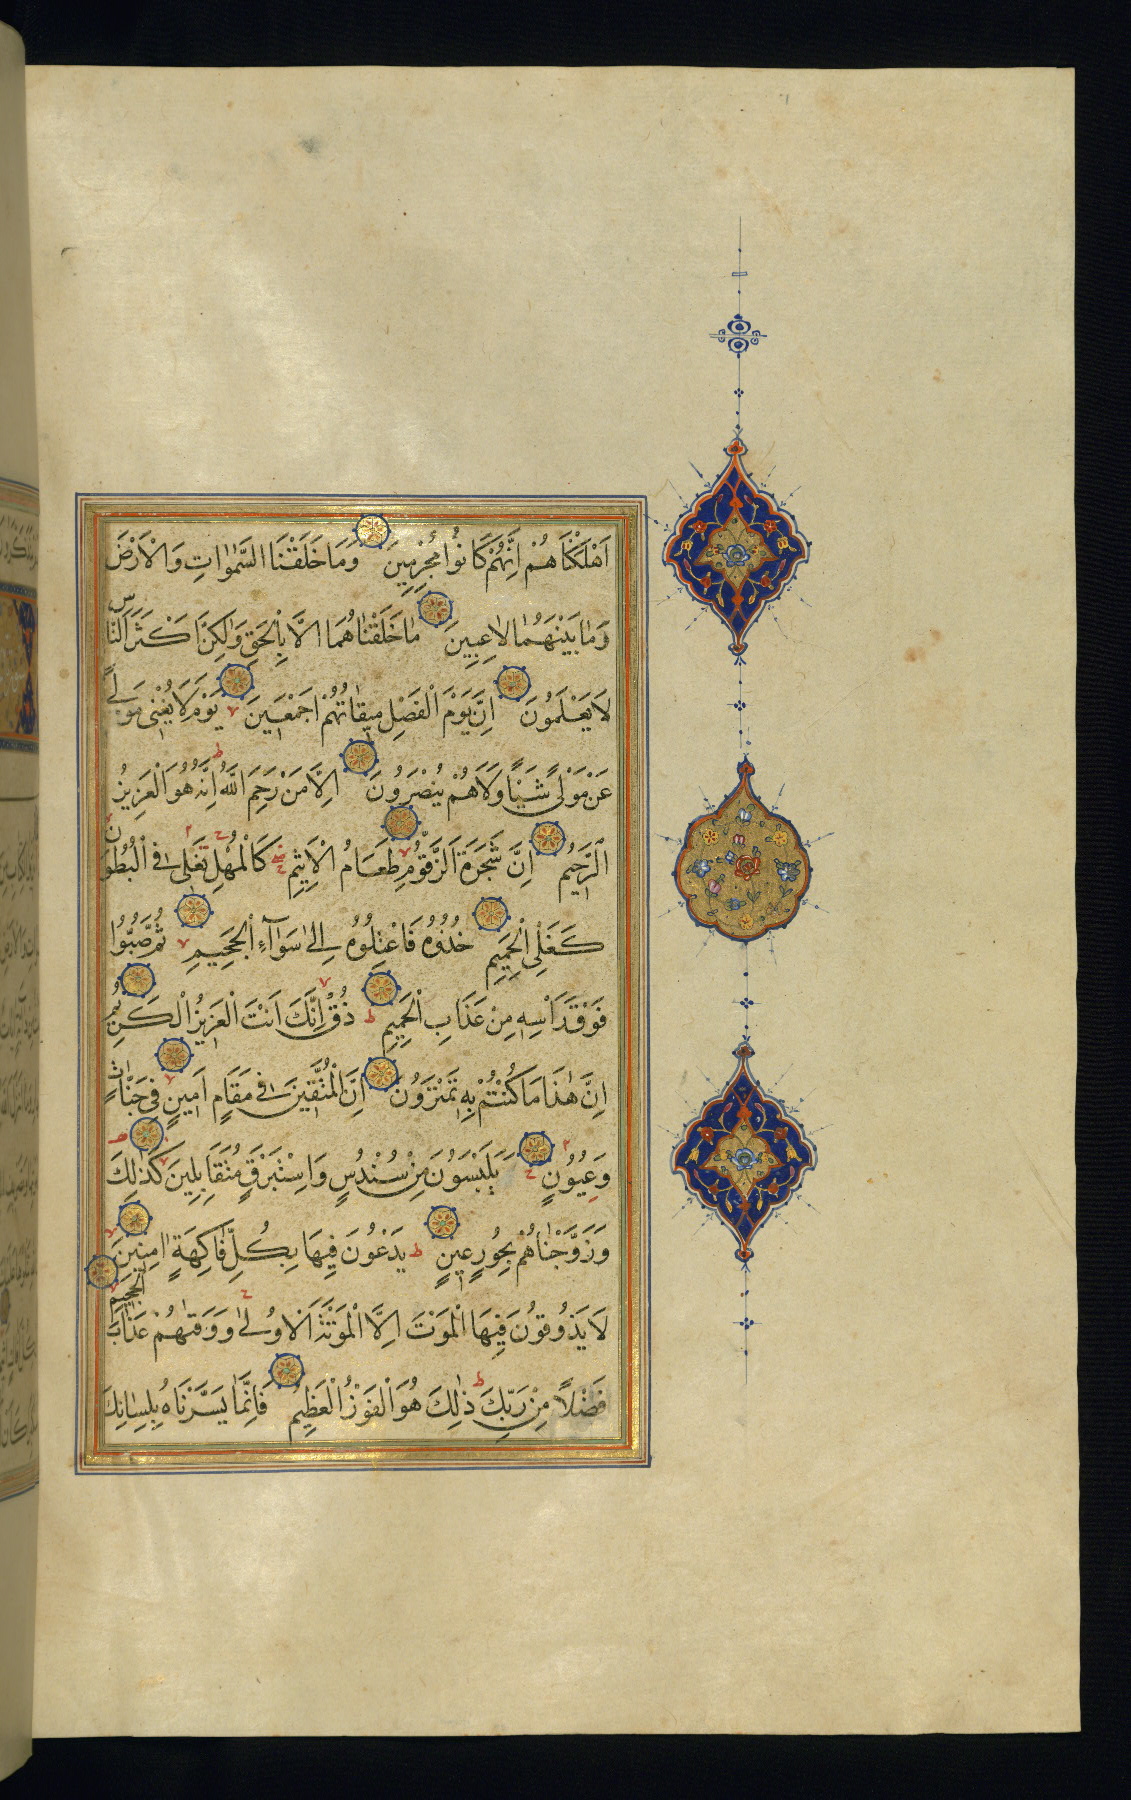 اَهْلَكْنَاهُمْ اِنَّهُمْ كَانُوا مُجْرِمِينَ وَمَا خَلَقْنَا السَّمٰوَاتِ وَالْاَرْضَ
وَمَا بَيْنَهُمَا لَاعِبِينَ مَا خَلَقْنَاهُمَا اِلَّا بِالْحَقِّ وَلٰكِنَّ اَكْثَرَ النَّاس
لَا يَعْلَمُونَ اِنَّ يَوْمَ الْفَصْلِ مِيقَاتُهُمْ اَجْمَعِينَ يَوْمَ لَا يُغْنِى مَوْلًى
عَنْ مَوْلًى شَيْئًا وَلَا هُمْ يُنْصَرُونَ اِلَّا مَنْ رَحِمَ اللّٰهُ اِنَّهُ هُوَ الْعَزِيزُ
الرَّحِيمُ اِنَّ شَجَرَةَ الزَّقُّومِ طَعَامُ الْاَثِيمِ كَالْمُهْلِ تَغْلِى فِى الْبُطُونِ
كَغَلْىِ الْحَمِيمِ خُذُوهُ فَاعْتِلُوهُ اِلٰى سَوَآءِ الْجَحِيمِ ثُمَّ صُبُّوا
فَوْقَ رَاْسِهِ مِنْ عَذَابِ الْحَمِيمِ ذُقْ اِنَّكَ اَنْتَ الْعَزِيزُ الْكَرِيمُ
اِنَّ هٰذَا مَا كُنْتُمْ بِهِ تَمْتَرُونَ اِنَّ الْمُتَّقِينَ فِى مَقَامٍ اَمِينٍ فِى جَنَّاتٍ
وَعُيُونٍ يَلْبَسُونَ مِنْ سُنْدُسٍ وَاِسْتَبْرَقٍ مُتَقَابِلِينَ كَذٰلِكَ
وَزَوَّجْنَاهُمْ بِحُورٍ عِينٍ يَدْعُونَ فِيهَا بِكُلِّ فَاكِهَةٍ اٰمِنِينَ
لَا يَذُوقُونَ فِيهَا الْمَوْتَ اِلَّا الْمَوْتَةَ الْاُولٰى وَوَقٰيهُمْ عَذَابَ الْجَحِيمِ
فَضْلًا مِنْ رَبِّكَ ذٰلِكَ هُوَ الْفَوْزُ الْعَظِيمُ فَاِنَّمَا يَسَّرْنَاهُ بِلِسَانِكَ